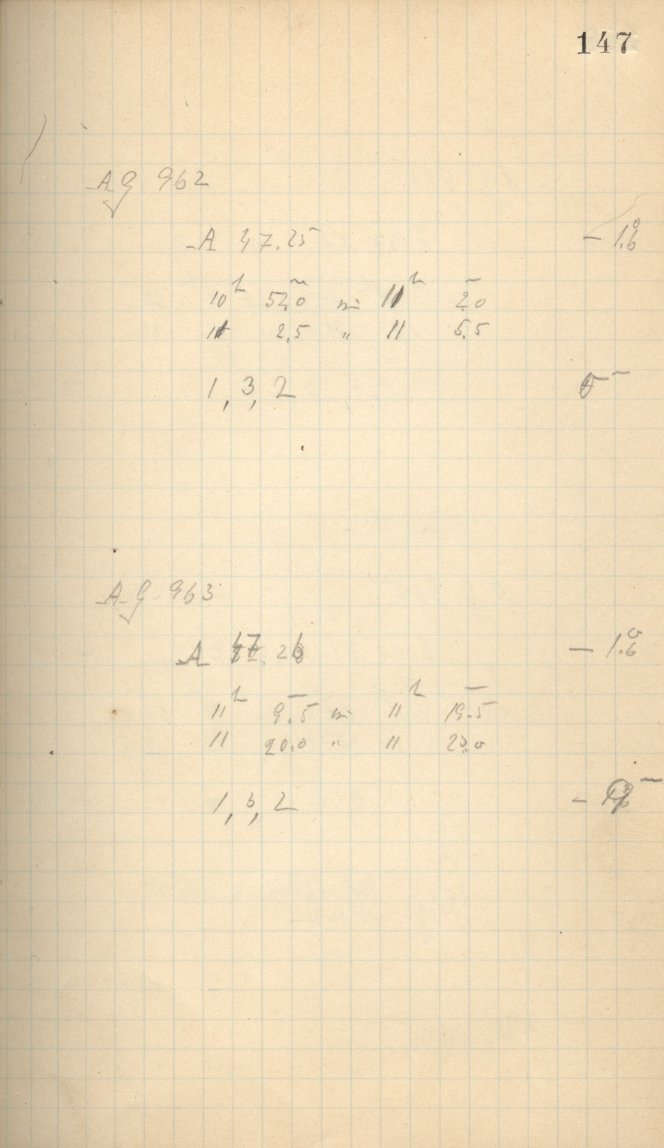 147
AG 962
A 47.25 - 1.6°
10h 52.0m 11h 2.0
11 2.5 " 11 5.5
1, 3, 2 0m
AG 963
A 47.26 - 1.6°
11h 9.5 11h 19.5
11 20.0 " 11 23.0
1, 3, 2